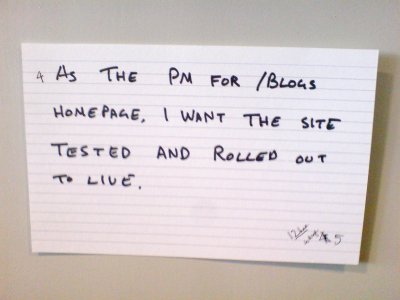 4 AS THE PM FOR /BLOGS
HOMEPAGE, I WANT THE SITE
TESTED AND ROLLED OUT
TO LIVE.
5